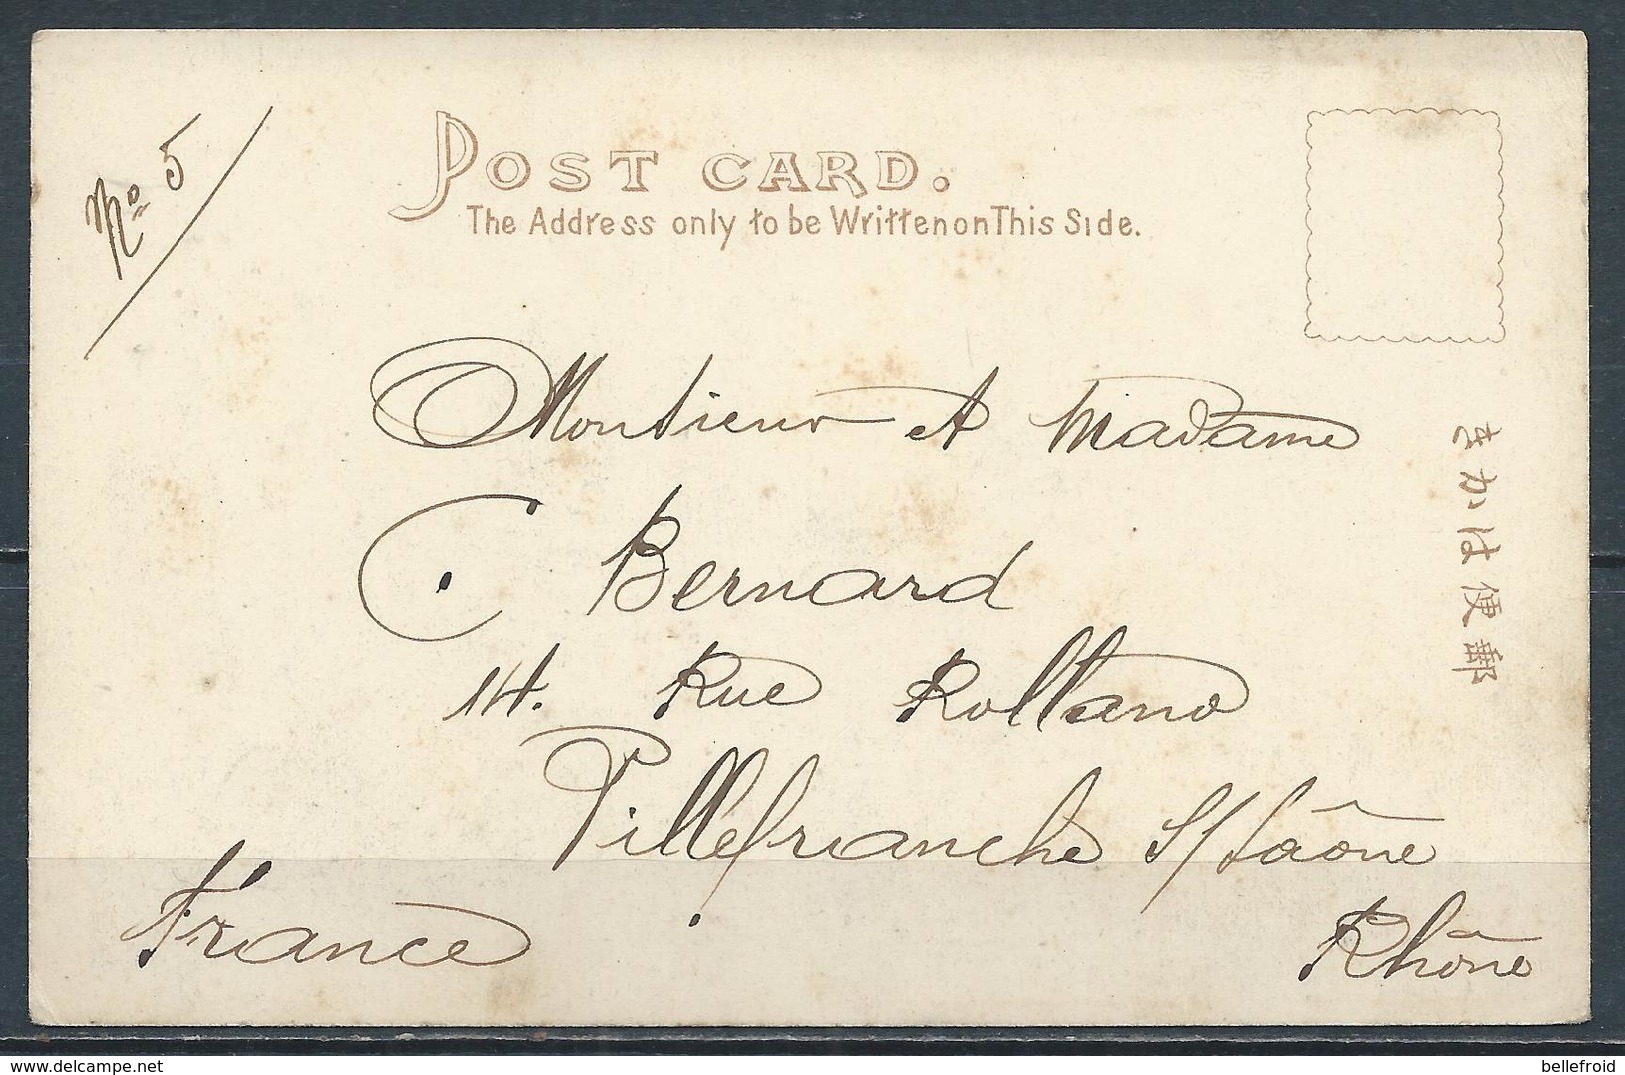 No 5
POST CARD.
The Address only to be Written on This Side.
Monsieur et Madame
C. Bernard
14. Rue Rolland
Villefranche s/Saône
Rhône
France
きかは便郵
bellefroid